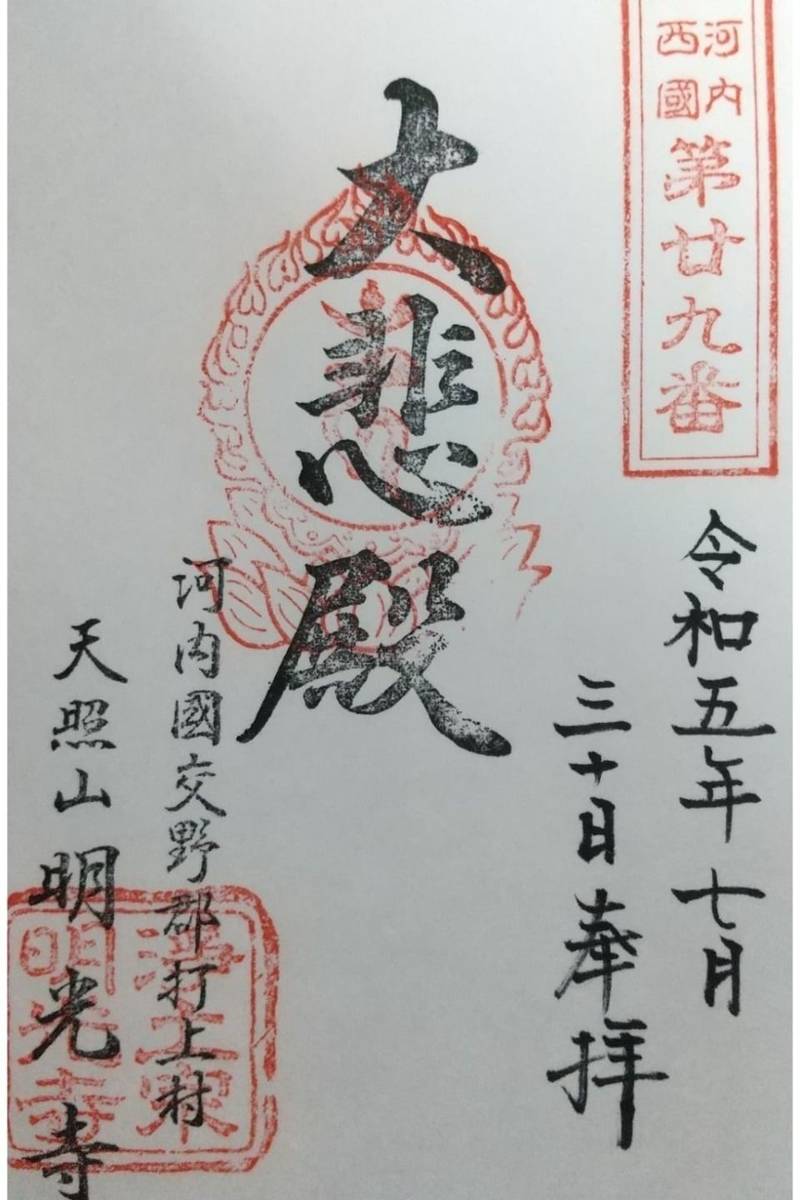 河内
西國
第廿九番
令和五年七月
三十日奉拝
大悲殿
河内國交野郡打上村
天照山明光寺
浄土宗
明光寺